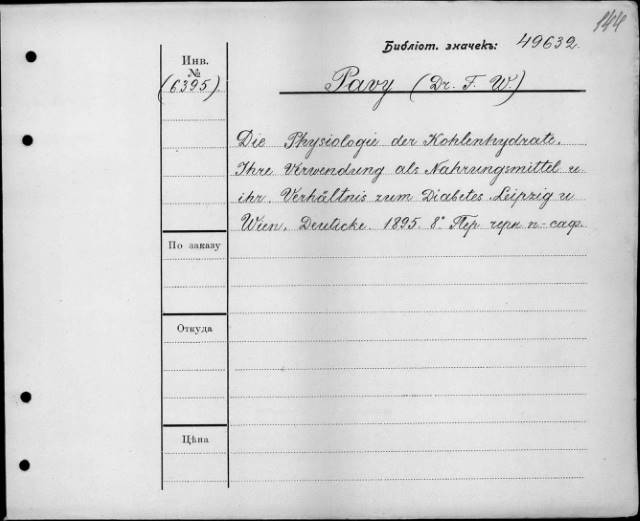 144
Библіот. значекъ: 49632.
Инв.
№
(6395).
Pavy (Dr. F. W.)
Die Physiologie der Kohlenhydrate.
Ihre Verwendung als Nahrungsmittel u.
ihr. Verhältnis zum Diabetes. Leipzig u
Wien. Deuticke. 1895. 8° Пер. черн. п-саф.
По заказу
Откуда
Цѣна